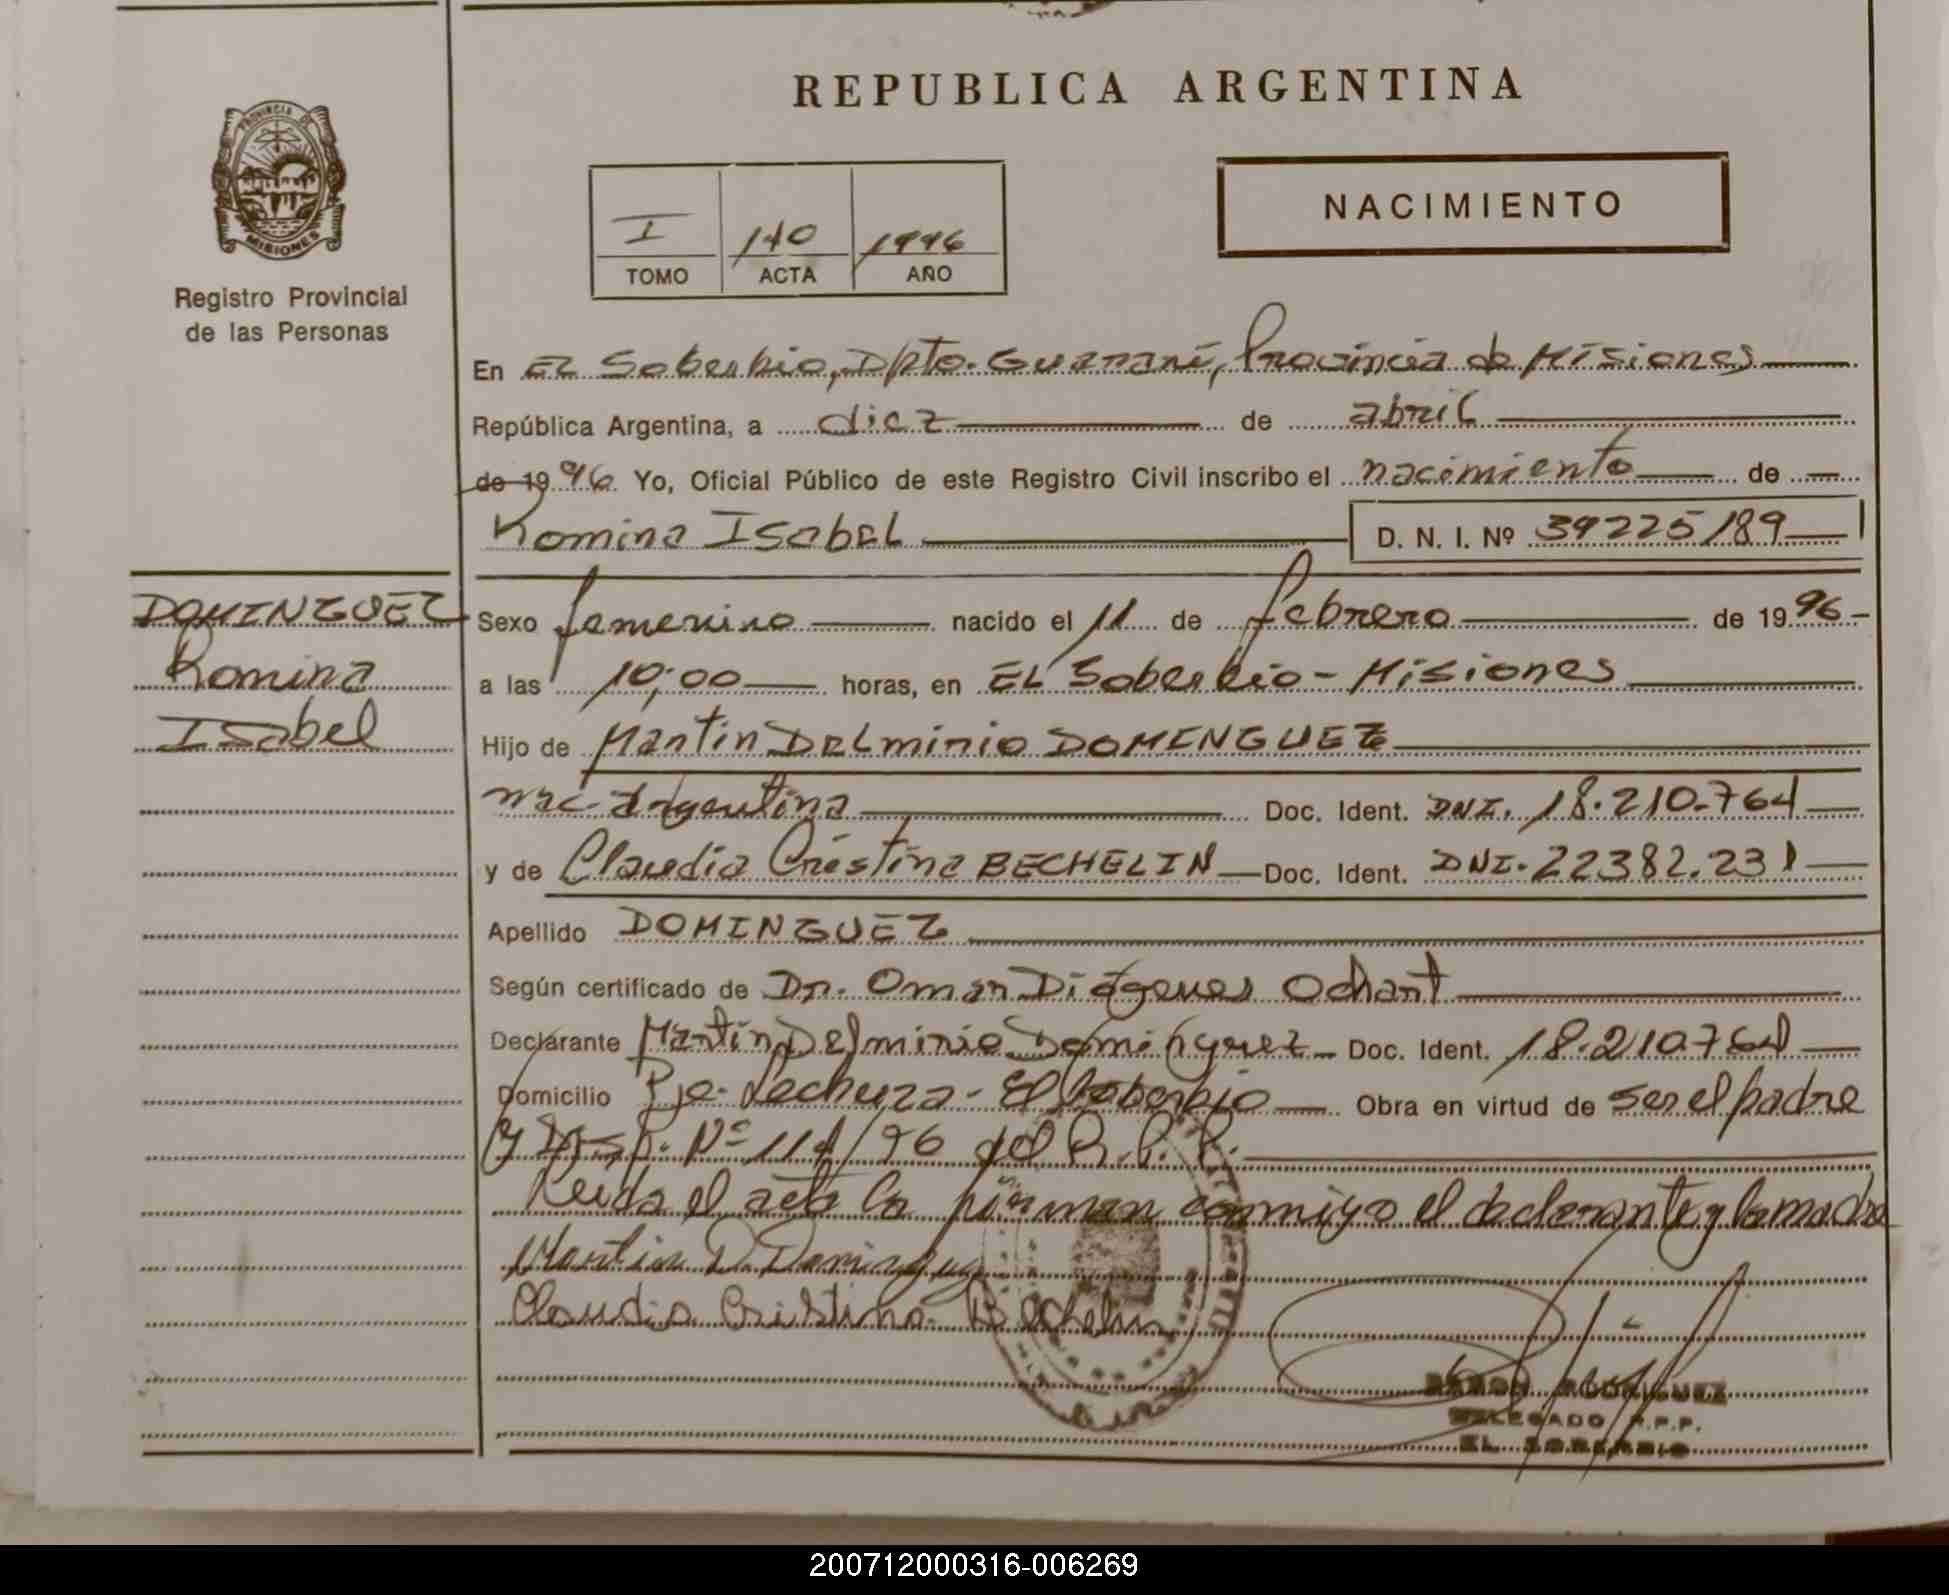 REPUBLICA ARGENTINA
PROVINCIA DE
MISIONES
Registro Provincial
de las Personas
I 140 1996
TOMO ACTA AÑO
NACIMIENTO
En El Soberbio, Dpto. Guaraní, Provincia de Misiones
República Argentina, a diez de abril
de 1996 Yo, Oficial Público de este Registro Civil inscribo el nacimiento de
Romina Isabel D. N. I. Nº 39225189
DOMINGUEZ
Romina
Isabel
Sexo femenino nacido el 11 de febrero de 1996
a las 10,00 horas, en El Soberbio - Misiones
Hijo de Martin Delminio DOMINGUEZ
nac. Argentina Doc. Ident. DNI. 18.210.764
y de Claudia Cristina BECHELIN Doc. Ident. DNI. 22382.231
Apellido DOMINGUEZ
Según certificado de Dr. Omar Diógenes Ochant
Declarante Martin Delminio Dominguez Doc. Ident. 18.210.764
Domicilio Pje. Lechuza - El Soberbio Obra en virtud de ser el padre
y Disp. Nº 114/96 del R.P.P.
Leida el acta la firman conmigo el declarante y la madre
Martin D. Dominguez
Claudia Cristina Bechelin
RAMON RODRIGUEZ
DELEGADO R.P.P.
EL SOBERBIO
200712000316-006269